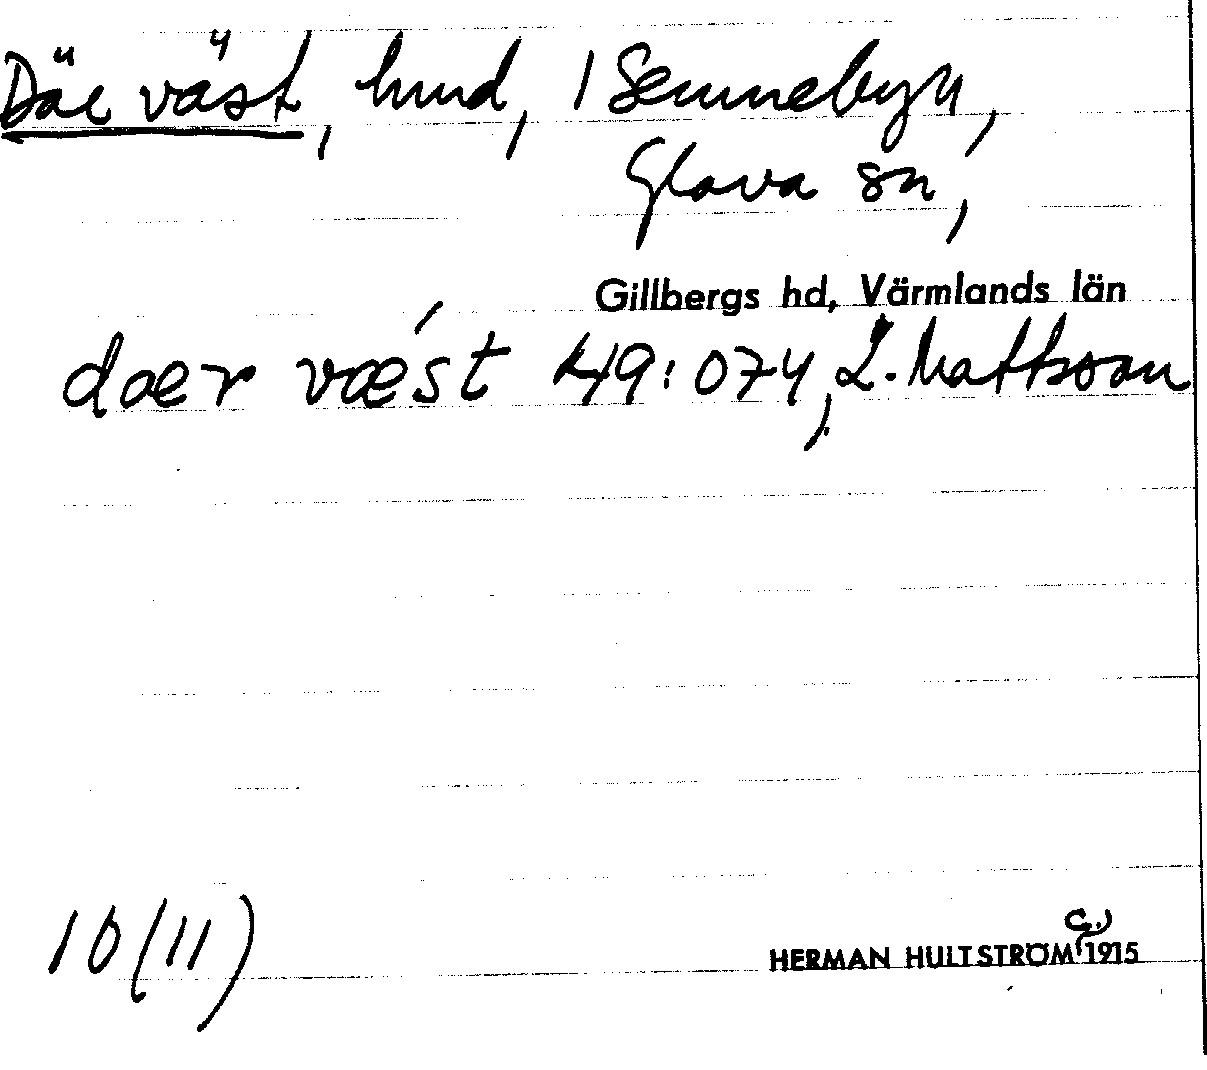 Där väst, hmd, i Semnebyn,
Glava sn,
Gillbergs hd, Värmlands län
daer væ´st 49:074, L. Mattsson
10 (11)
HERMAN HULTSTRÖM (c.) 1915